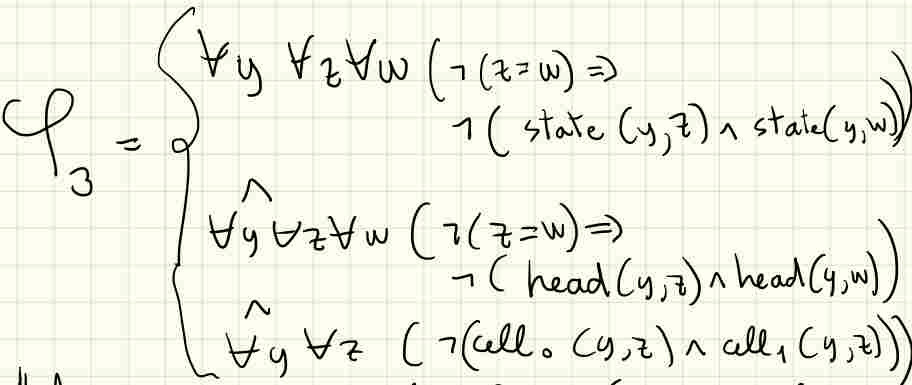 φ₃ = { ∀y ∀z ∀w (¬(z = w) ⇒
¬( state (y,z) ∧ state(y,w)))
∧
∀y ∀z ∀w (¬(z = w) ⇒
¬( head (y,z) ∧ head(y,w)))
∧
∀y ∀z (¬(cell₀ (y,z) ∧ cell₁ (y,z)))